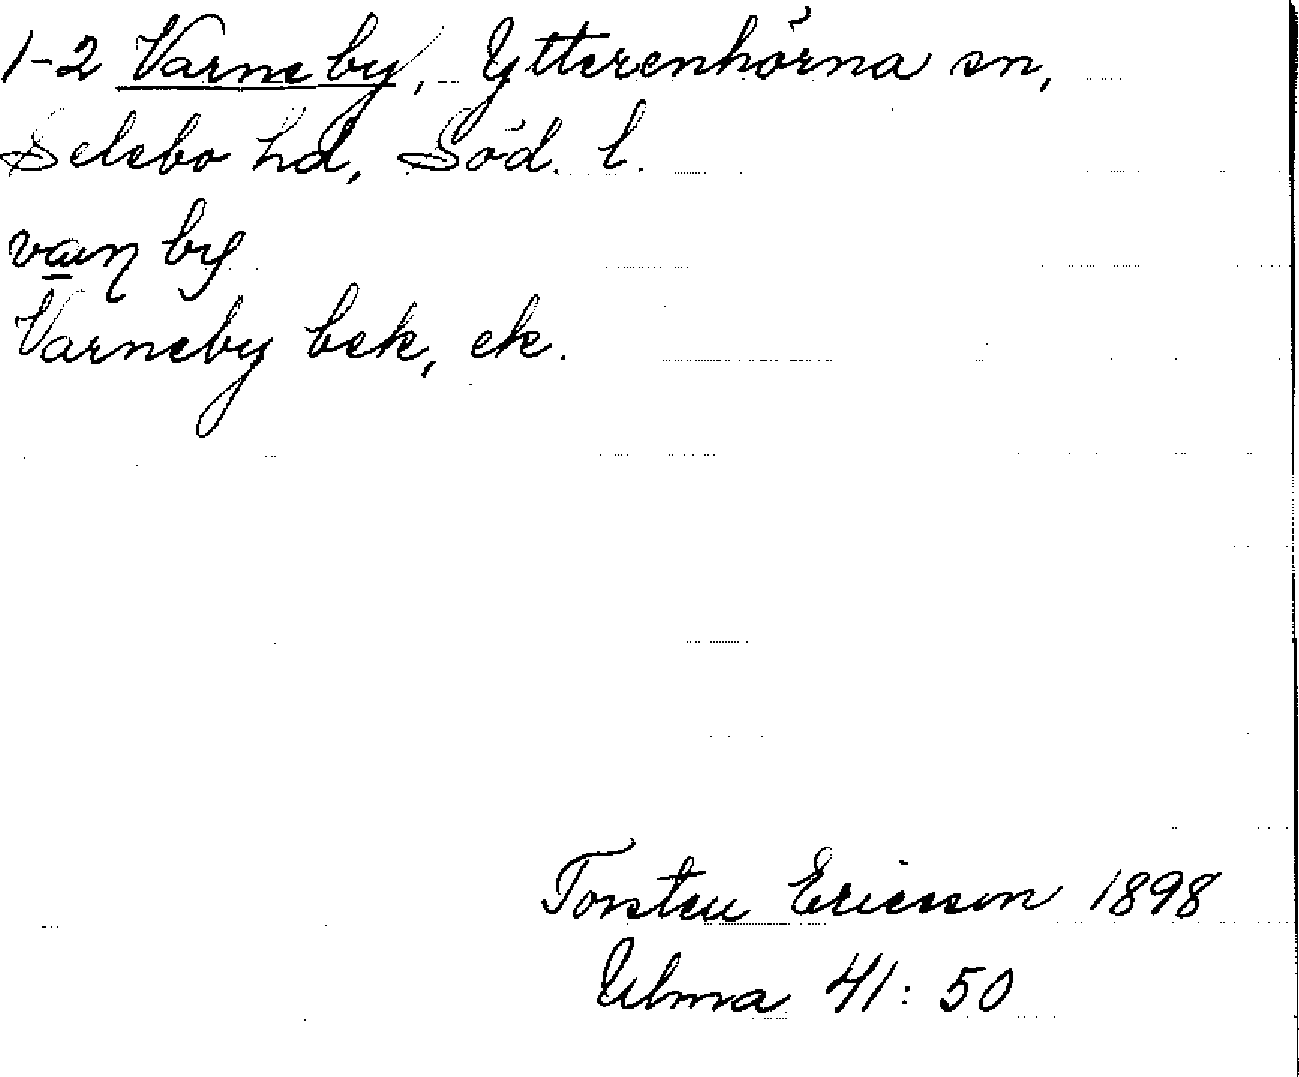 1-2 Varneby, Ytterenhörna sn,
Selebo hd, Söd. l.
by
Varneby bek, ek.
Torsten Ericsson 1898
Ulma 41:50